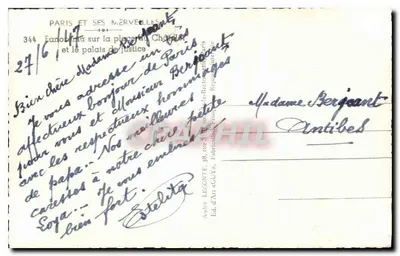 PARIS ET SES MERVEILLES
344 Panorama sur la place du Châtelet
et le palais de Justice
27/6/47
Bien chère Madame Bergeant
Je vous adresse un très
affectueux bonjour de Paris
pour vous et Monsieur Bergeant
avec les respectueux hommages
de papa... Nos meilleures
caresses à notre chère petite
Loya... Je vous embrasse
bien fort.
Estelita
André LECONTE, 38, rue
Ed. d'Art
Madame Bergeant
Antibes